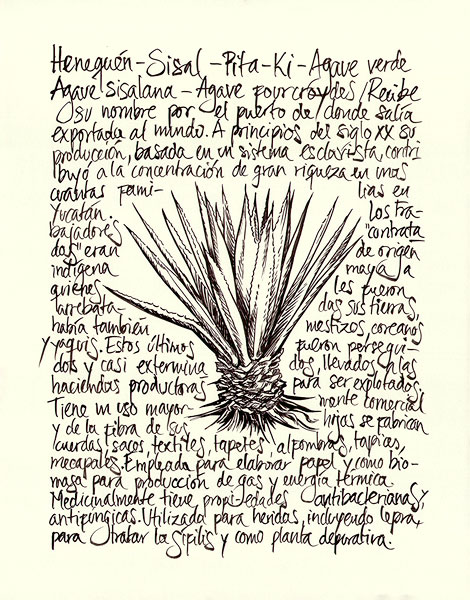 Henequén - Sisal - Pita - Ki - Agave verde
Agave Sisalana - Agave fourcroydes / Recibe
su nombre por el puerto de donde salía
exportada al mundo. A principios del siglo XX su
producción, basada en un sistema esclavista, contri
buyó a la concentración de gran riqueza en unas
cuantas fami- lias en
Yucatán. los tra-
bajadores "contrata
dos" eran de origen
indígena maya a
quienes les fueron
arrebata- das sus tierras,
había también mestizos, coreanos
y yaquis. Estos últimos fueron persegui-
dos y casi extermina dos, llevados a las
haciendas productoras para ser explotados.
Tiene un uso mayor- mente comercial
y de la fibra de sus hojas se fabrican
cuerdas, sacos, textiles, tapetes, alfombras, tapices,
mecapales. Empleada para elaborar papel y como bio-
masa para producción de gas y energía térmica.
Medicinalmente tiene propiedades antibacterianas y,
antifúngicas. Utilizada para heridas, incluyendo lepra,
para tratar la sífilis y como planta depurativa.